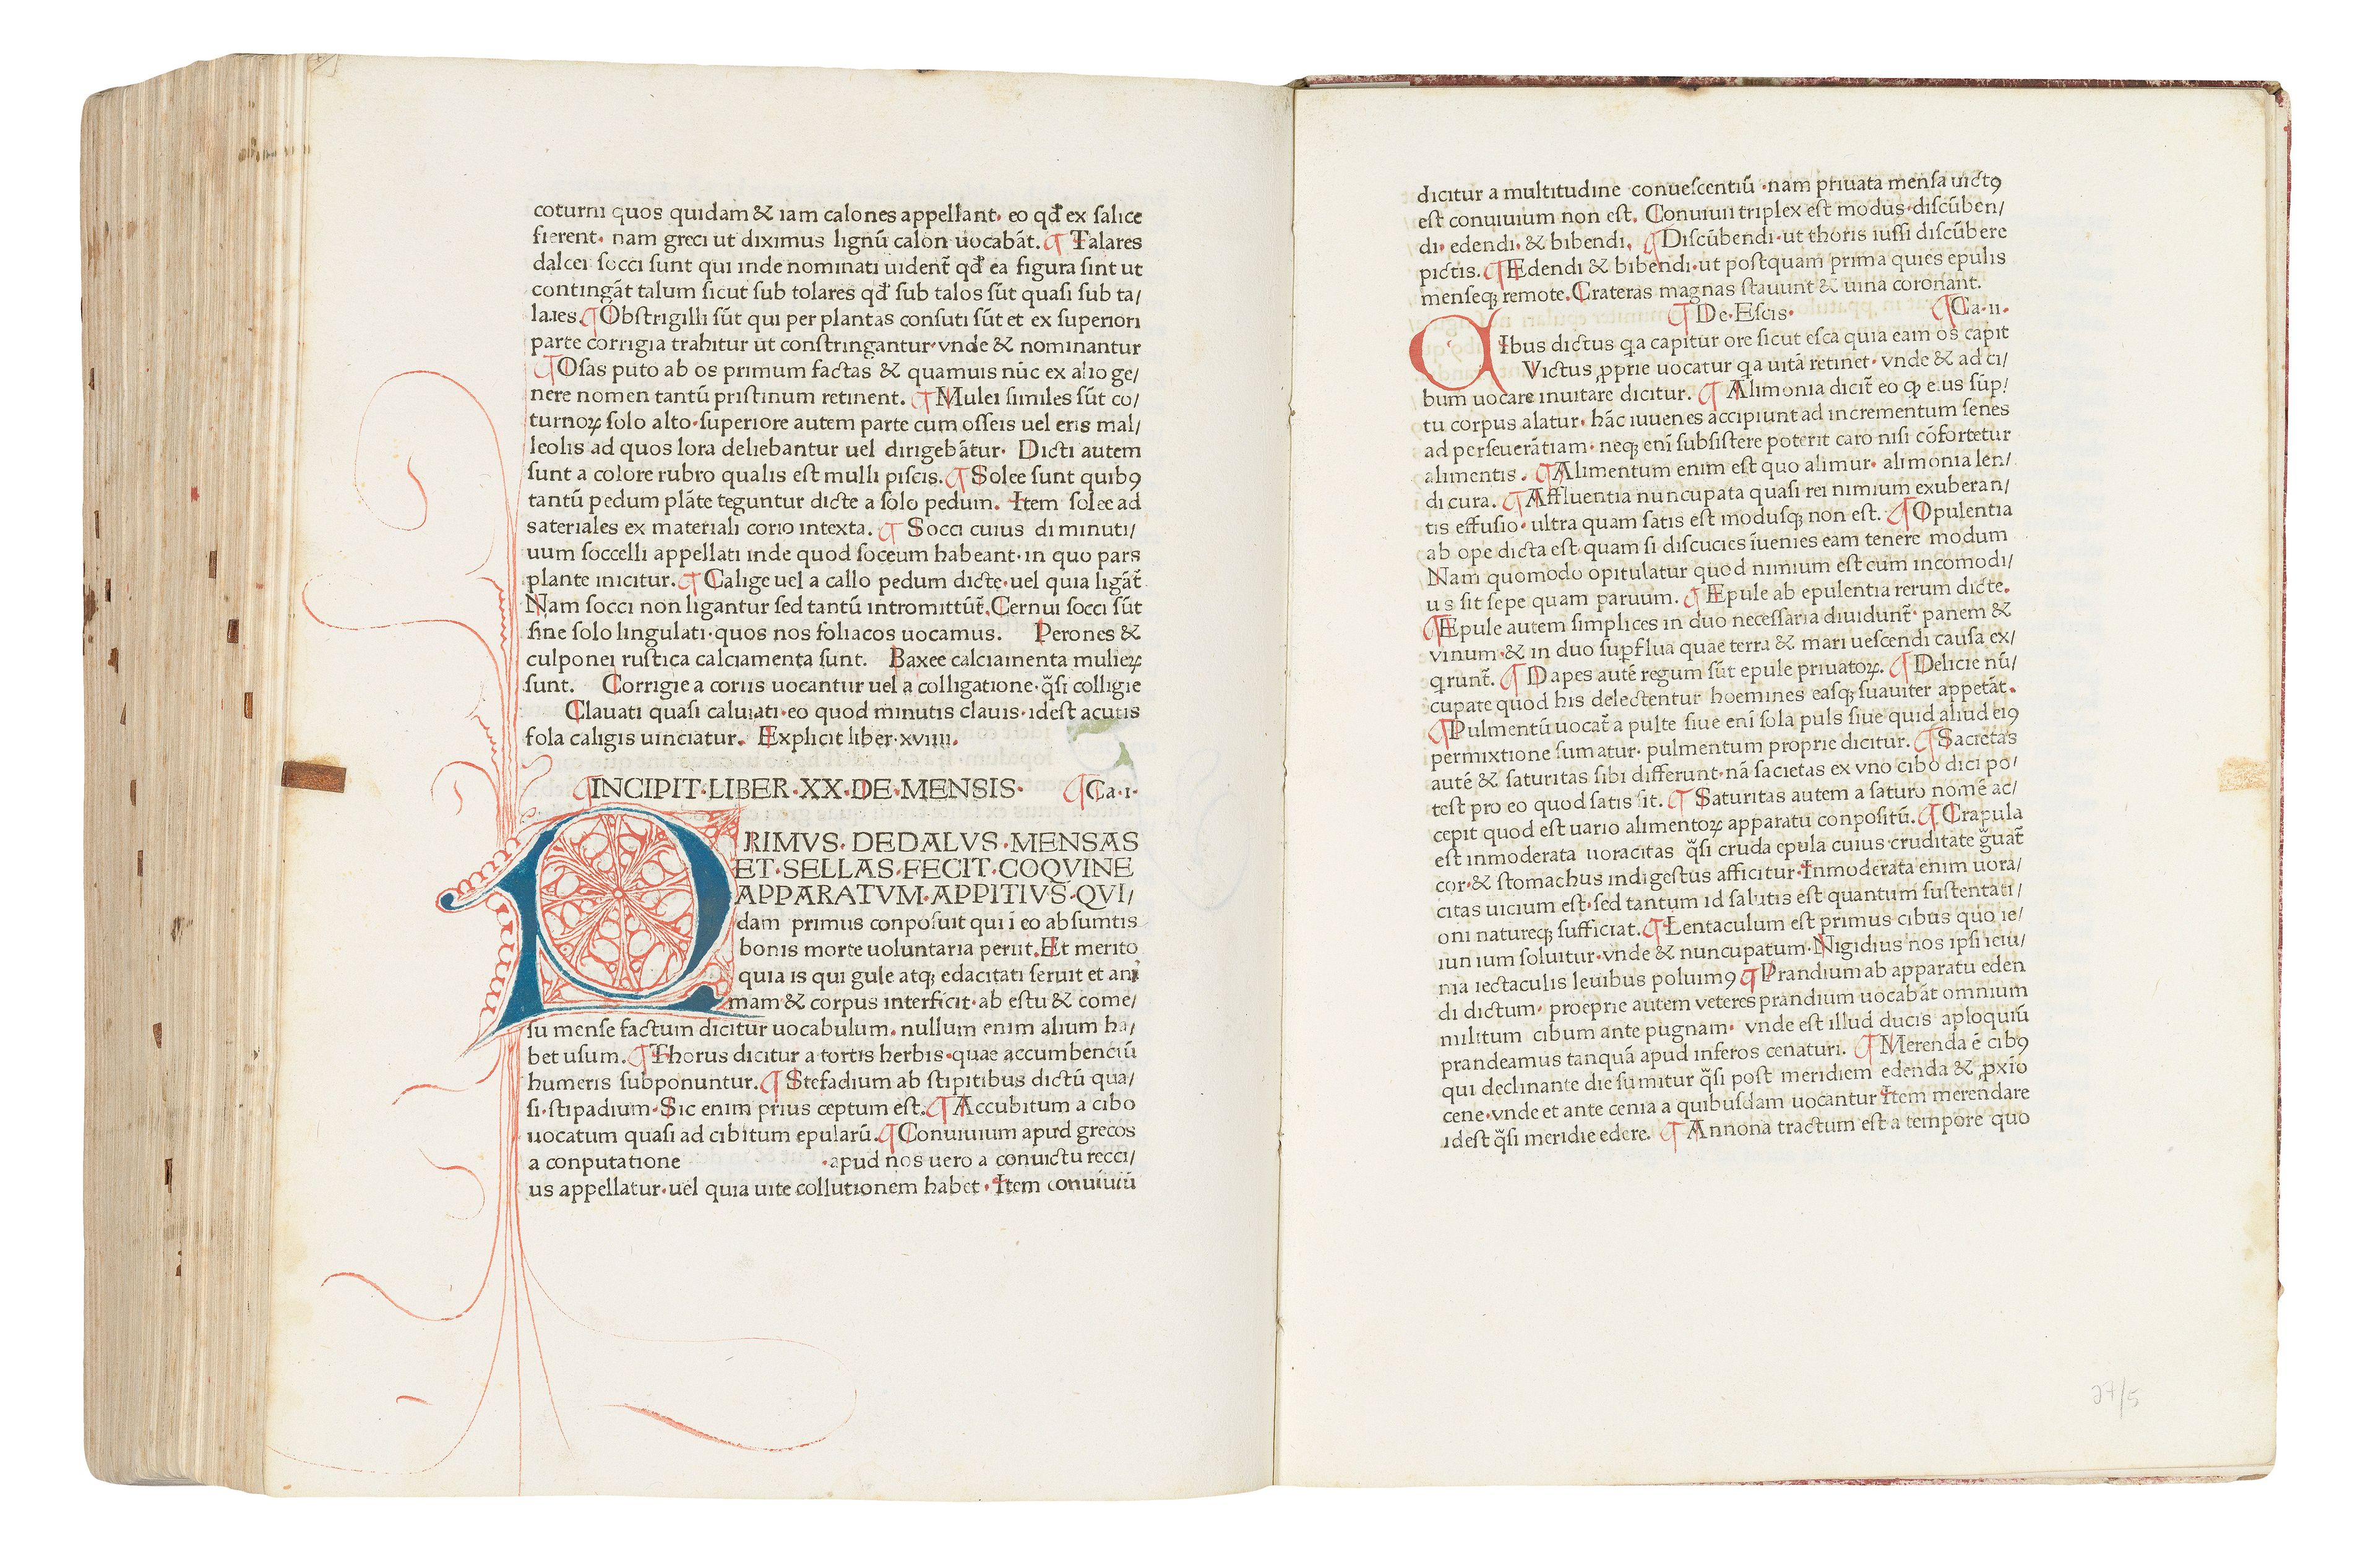 coturni quos quidam & iam calones appellant· eo qđ ex ſalice
fierent· nam greci ut diximus lignū calon uocabāt. ¶ Talares
dalcei ſocci ſunt qui inde nominati uident̄ qđ ea figura ſint ut
contingāt talum ſicut ſub tolares qđ ſub talos ſūt quaſi ſub ta/
lares. ¶ Obſtrigilli ſūt qui per plantas conſuti ſūt et ex ſuperiori
parte corrigia trahitur ut conſtringantur· vnde & nominantur
¶ Oſas puto ab os primum factas & quamuis nūc ex alio ge/
nere nomen tantū priſtinum retinent. ¶ Mulei ſimiles ſūt co/
turnoꝝ ſolo alto· ſuperiore autem parte cum oſſeis uel eris mal/
leolis ad quos lora deliebantur uel dirigebātur· Dicti autem
ſunt a colore rubro qualis eſt mulli piſcis. ¶ Solee ſunt quibꝰ
tantū pedum plāte teguntur dicte a ſolo pedum. Item ſolee ad
ſateriales ex materiali corio intexta. ¶ Socci cuius diminuti/
uum ſoccelli appellati inde quod ſoceum habeant· in quo pars
plante inicitur. ¶ Calige uel a callo pedum dicte· uel quia ligāt̄
Nam ſocci non ligantur ſed tantū intromittūt̄. Cernui ſocci ſūt
ſine ſolo lingulati· quos nos foliacos uocamus. Perones &
culponei ruſtica calciamenta ſunt. Baxee calciamenta mulieꝝ
ſunt. Corrigie a coriis uocantur uel a colligatione· q̄ſi colligie
Clauati quaſi caluiati· eo quod minutis clauis· ideſt acutis
ſola caligis uinciatur. Explicit liber·xviiii.
¶ INCIPIT·LIBER·XX·DE·MENSIS· ¶ Ca·i·
PRIMVS·DEDALVS·MENSAS
ET·SELLAS·FECIT·COQVINE
APPARATVM·APPITIVS·QVI/
dam primus conpoſuit qui ī eo abſumtis
bonis morte uoluntaria periit. Et merito
quia is qui gule atqꝫ edacitati ſeruit et ani
mam & corpus interficit· ab eſtu & come/
ſu menſe factum dicitur uocabulum· nullum enim alium ha/
bet uſum. ¶ Thorus dicitur a tortis herbis· quae accumbenciū
humeris ſubponuntur. ¶ Stefadium ab ſtipitibus dictū qua/
ſi·ſtipadium· Sic enim prius ceptum eſt. ¶ Accubitum a cibo
uocatum quaſi ad cibitum epularū. ¶ Conuiuium apud grecos
a conputatione ·apud nos uero a conuictu recci/
us appellatur· uel quia uite collutionem habet· Item conuiuiū
dicitur a multitudine conueſcentiū· nam priuata menſa uictꝰ
eſt conuiuium non eſt. Conuiuii triplex eſt modus· diſcūben/
di· edendi· & bibendi. ¶ Diſcūbendi· ut thoris iuſſi diſcūbere
pictis. ¶ Edendi & bibendi· ut poſtquam prima quies epulis
menſeqꝫ remote. Crateras magnas ſtauunt & uina coronant.
¶ De·Eſcis· ¶ Ca·ii·
CIbus dictus q̇a capitur ore ſicut eſca quia eam os capit
Victus ꝓprie uocatur q̇a uitā retinet· vnde & ad ci/
bum uocare inuitare dicitur. ¶ Alimonia dicit̄ eo ꝙ eius ſūp/
tu corpus alatur· hāc iuuenes accipiunt ad incrementum ſenes
ad perſeuerātiam· neqꝫ enī ſubſiſtere poterit caro niſi cōfortetur
alimentis. ¶ Alimentum enim eſt quo alimur· alimonia len/
di cura. ¶ Affluentia nuncupata quaſi rei nimium exuberan/
tis effuſio· ultra quam ſatis eſt modusqꝫ non eſt. ¶ Opulentia
ab ope dicta eſt· quam ſi diſcucies īuenies eam tenere modum
Nam quomodo opitulatur quod nimium eſt cum incomodi/
us ſit ſepe quam paruum. ¶ Epule ab epulentia rerum dicte.
¶ Epule autem ſimplices in duo neceſſaria diuidunt̄· panem &
vinum· & in duo ſuꝑflua quae terra & mari ueſcendi cauſa ex/
q̇runt̄. ¶ Dapes autē regum ſūt epule priuatoꝝ. ¶ Delicie nū/
cupate quod his delectentur hoemines easqꝫ ſuauiter appetāt.
¶ Pulmentū uocat̄ a pulte ſiue enī ſola puls ſiue quid aliud eiꝰ
permixtione ſumatur· pulmentum proprie dicitur. ¶ Sacietas
autē & ſaturitas ſibi differunt· nā ſacietas ex vno cibo dici po/
teſt pro eo quod ſatis ſit. ¶ Saturitas autem a ſaturo nomē ac/
cepit quod eſt uario alimentoꝝ apparatu conpoſitū. ¶ Crapula
eſt inmoderata uoracitas q̄ſi cruda epula cuius cruditate g̃uat̄
cor· & ſtomachus indigeſtus afficitur· Inmoderata enim uora/
citas uicium eſt· ſed tantum id ſalutis eſt quantum ſuſtentati/
oni natureqꝫ ſufficiat. ¶ Lentaculum eſt primus cibus quo ie/
iunium ſoluitur· vnde & nuncupatum· Nigidius nos ipſi ieiu/
nia iectaculis leuibus poluimꝰ ¶ Prandium ab apparatu eden
di dictum· proeprie autem veteres prandium uocabāt omnium
militum cibum ante pugnam· vnde eſt illud ducis aploquiū
prandeamus tanquā apud inferos cenaturi. ¶ Merenda ē cibꝰ
qui declinante die ſumitur q̄ſi poſt meridiem edenda & ꝓxio
cene· vnde et ante cenia a quibuſdam uocantur Item merendare
ideſt q̄ſi meridie edere. ¶ Annona tractum eſt a tempore quo
27/5